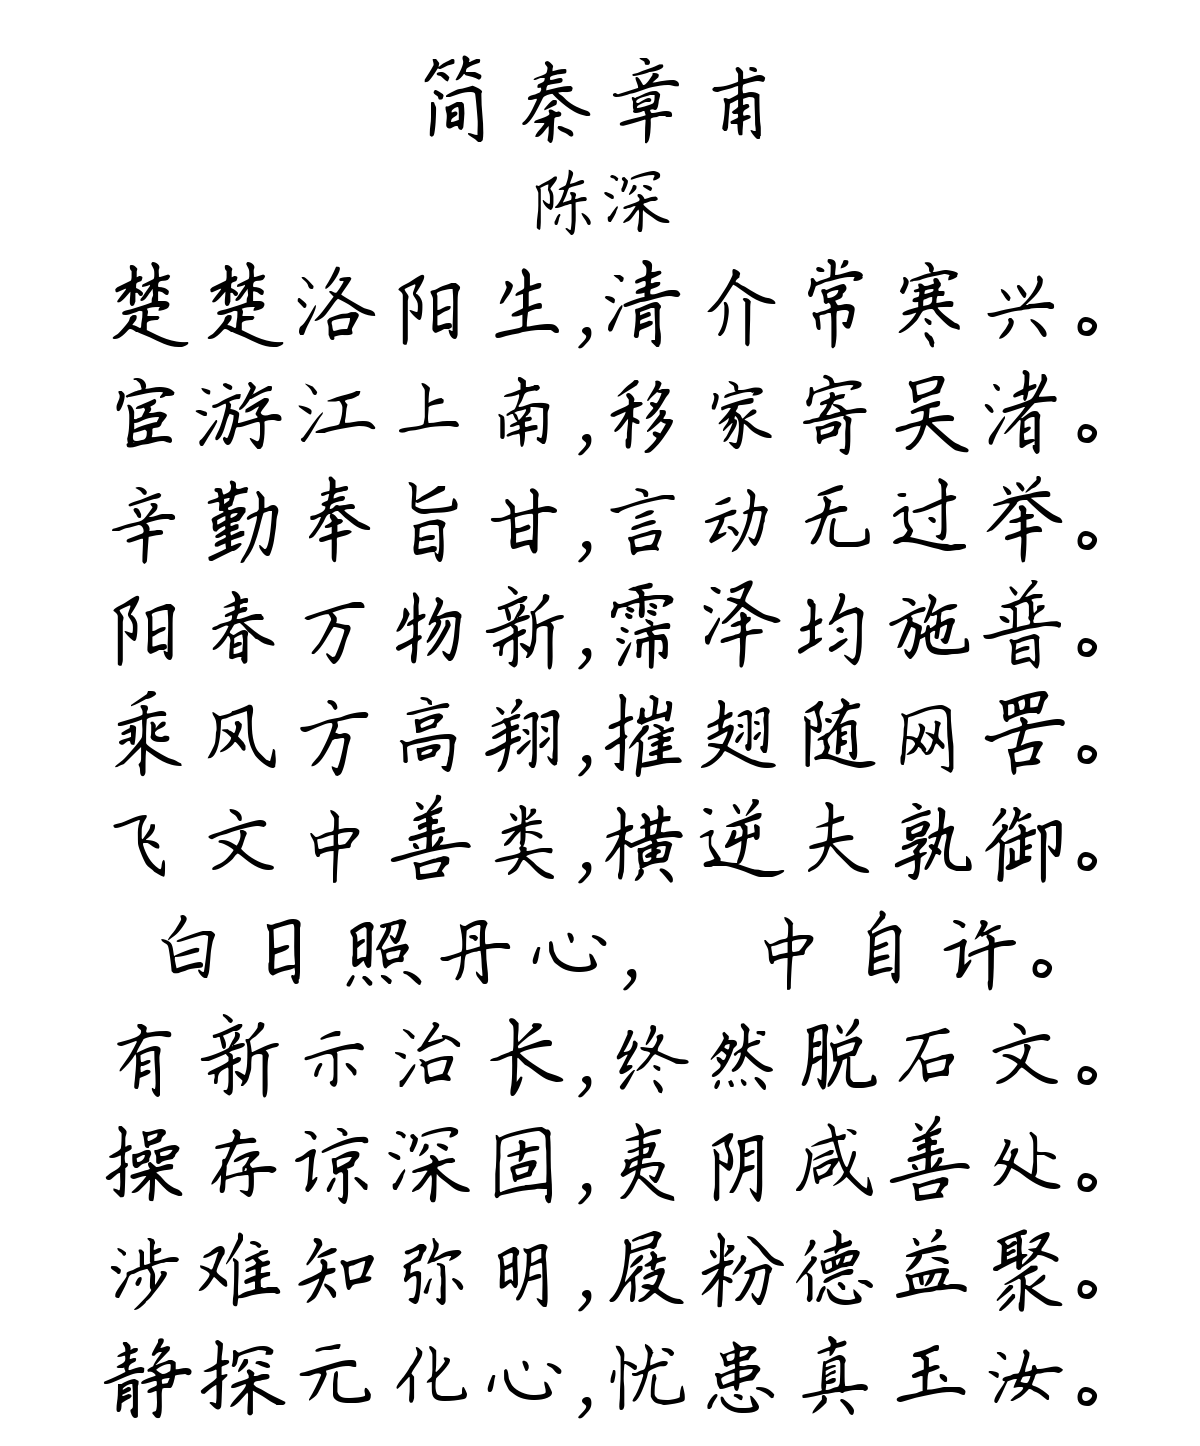 简秦章甫
陈深
楚楚洛阳生,清介常寒兴。
宦游江上南,移家寄吴渚。
辛勤奉旨甘,言动无过举。
阳春万物新,霈泽均施普。
乘风方高翔,摧翅随网罟。
飞文中善类,横逆夫孰御。
白日照丹心,  中自许。
有新示治长,终然脱石文。
操存谅深固,夷阴咸善处。
涉难知弥明,屐粉德益聚。
静探元化心,忧患真玉汝。